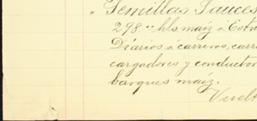 " Semillas Sauces
298 " hls. maíz a Cotn
Diarios a carreros, carr
cargadores y conductor
barques maíz.
Vuelt